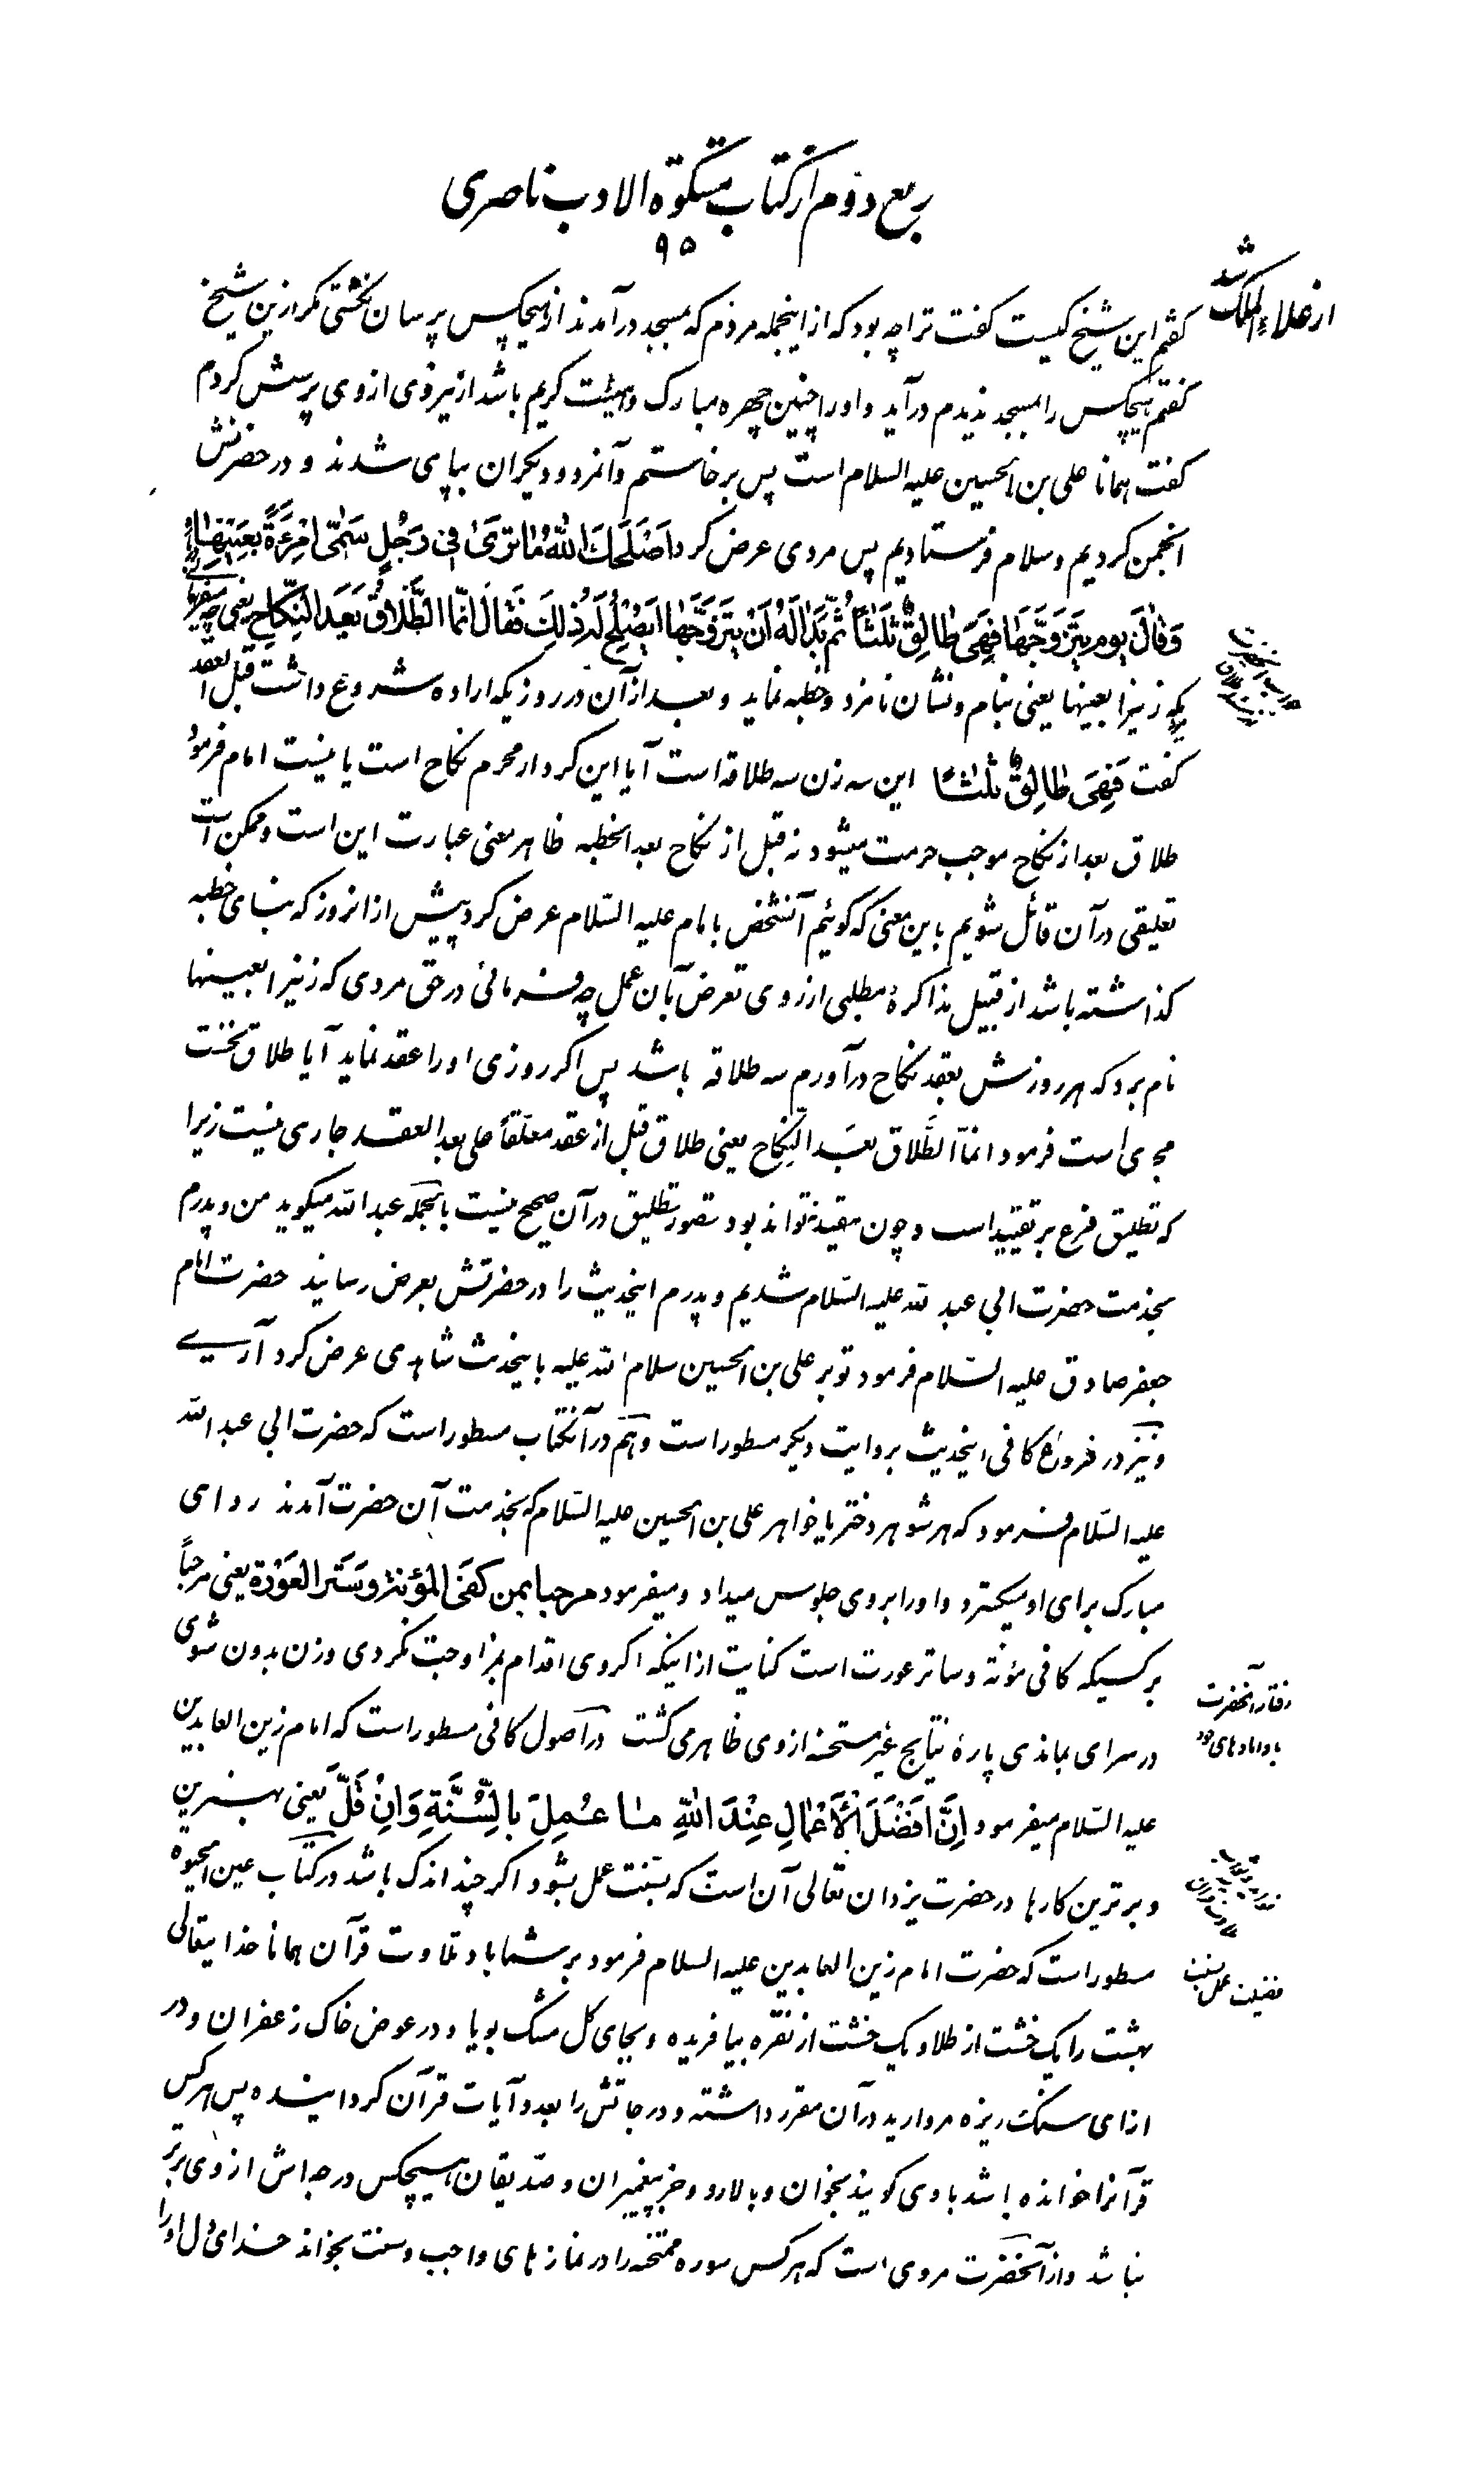 ربع دوم از کتاب مشکوة الادب ناصری
۹۵
کفتم این شیخ کیست کفت تراچه بود که از اینجمله مردم که بمسجد درآمدند از هیچکس پرسان نکشتی مکر ازین شیخ
کفتم هیچکس را بمسجد ندیدم درآید و او را چنین چهره مبارک و هیئت کریم باشد از ینروی از وی پرسش کردم
کفت همانا علی بن الحسین علیه السلام است پس برخاستم و آنمرد و دیکران بپای شدند و در حضرتش
انجمن کردیم و سلام فرستادیم پس مردی عرض کرد اَصْلَحَكَ اللّٰهُ مٰا تَرىٰ فی رَجُلٍ سَمّٰی امْرَءَةً بِعَیْنِهٰا
وَقٰالَ یَومَ یَتَزَوَّجُهٰا فَهِیَ طٰالِقٌ ثَلٰثاً ثُمَّ بَدٰا لَهُ اَنْ یَتَزَوَّجَهٰا اَیَصْلُحُ لَهُ ذٰلِكَ فَقٰالَ اِنَّمَا الطَّلٰاقُ بَعْدَ النِّکٰاحِ یعنی چه میفرمائی
یکه زنیرا بعینها یعنی بنام و نشان نامزد و خطبه نماید و بعد از آن در روزیکه اراده شروع داشت قبل العقد
کفت فَهِیَ طٰالِقٌ ثَلٰثاً این سه زن سه طلاقه است آیا این کردار محرم نکاح است یا نیست امام فرمود
طلاق بعد از نکاح موجب حرمت میشود نه قبل از نکاح بعد الخطبه ظاهر معنی عبارت این است و ممکن است
تعلیقی در آن قائل شویم باین معنی که کوئیم آنشخص بامام علیه السّلام عرض کرد پیش از انروز که بنای خطبه
کذاشته باشد از قبیل مذاکرهٔ مطلبی از روی تعرض بآن عمل چه فرمائی در حق مردی که زنیرا بعینها
نام برد که هر روزش بعقد نکاح درآورم سه طلاقه باشد پس اکر روزی او را عقد نماید آیا طلاق نخست
مجری است فرمود انَّمَا الطَّلاق بَعدَ النِّکاح یعنی طلاق قبل از عقد معلّقاً علی بعد العقد جاری نیست زیرا
که تعلیق فرع بر تقیید است و چون مقید نتواند بود تصور تعلیق در آن صحیح نیست بالجمله عبد اللّه میکوید من و پدرم
بخدمت حضرت ابی عبد اللّه علیه السّلام شدیم و پدرم اینحدیث را در حضرتش بعرض رسانید حضرت امام
جعفر صادق علیه السّلام فرمود تو بر علی بن الحسین سلام اللّه علیه باینحدیث شاهدی عرض کرد آری
و نیز در فروع کافی اینحدیث بروایت دیکر مسطور است و هم در آنکتاب مسطور است که حضرت ابی عبد اللّه
علیه السّلام فرمود که هر شوهر دختر یا خواهر علی بن الحسین علیه السّلام که بخدمت آن حضرت آمدند ردای
مبارک برای او میکسترد و او را بر وی جلوس میداد و میفرمود مرحبا بمن کَفَی المؤنة و سَتَرَ العَوْرَة یعنی مرحباً
بر کسیکه کافی مؤنة و ساتر عورت است کنایت از اینکه اکر وی اقدام بمزاوجت نکردی و زن بدون شوی
در سرای بماندی پارهٔ نتایج غیر مستحسنه از وی ظاهر می کشت در اصول کافی مسطور است که امام زین العابدین
علیه السّلام میفرمود اِنَّ اَفْضَلَ الْاَعْمٰالِ عِنْدَ اللّٰهِ مٰا عُمِلَ بِالسُّنَّةِ وَ اِنْ قَلَّ یعنی بهترین
و برترین کارها در حضرت یزدان تعالی آن است که بسنّت عمل بشود اکر چند اندک باشد در کتاب عین الحیوة
مسطور است که حضرت امام زین العابدین علیه السلام فرمود بر شما باد تلاوت قرآن همانا خدایتعالی
بهشت را یک خشت از طلا و یک خشت از نقره بیافریده و بجای کل مشک بویا و در عوض خاک زعفران و در
ازای سنگ ریزه مروارید در آن مقرر داشته و درجاتش را بعدد آیات قرآن کردانیده پس هر کس
قرآنرا خوانده باشد با وی کویند بخوان و بالا رو و جز پیغمبران و صدّیقان هیچکس درجه اش از وی برتر
نباشد و از آنحضرت مروی است که هر کس سوره ممتحنه را در نمازهای واجب و سنت بخواند خدای دل او را
رفتار آنحضرت
با دامادهای خود
فضیلت عمل بسنت